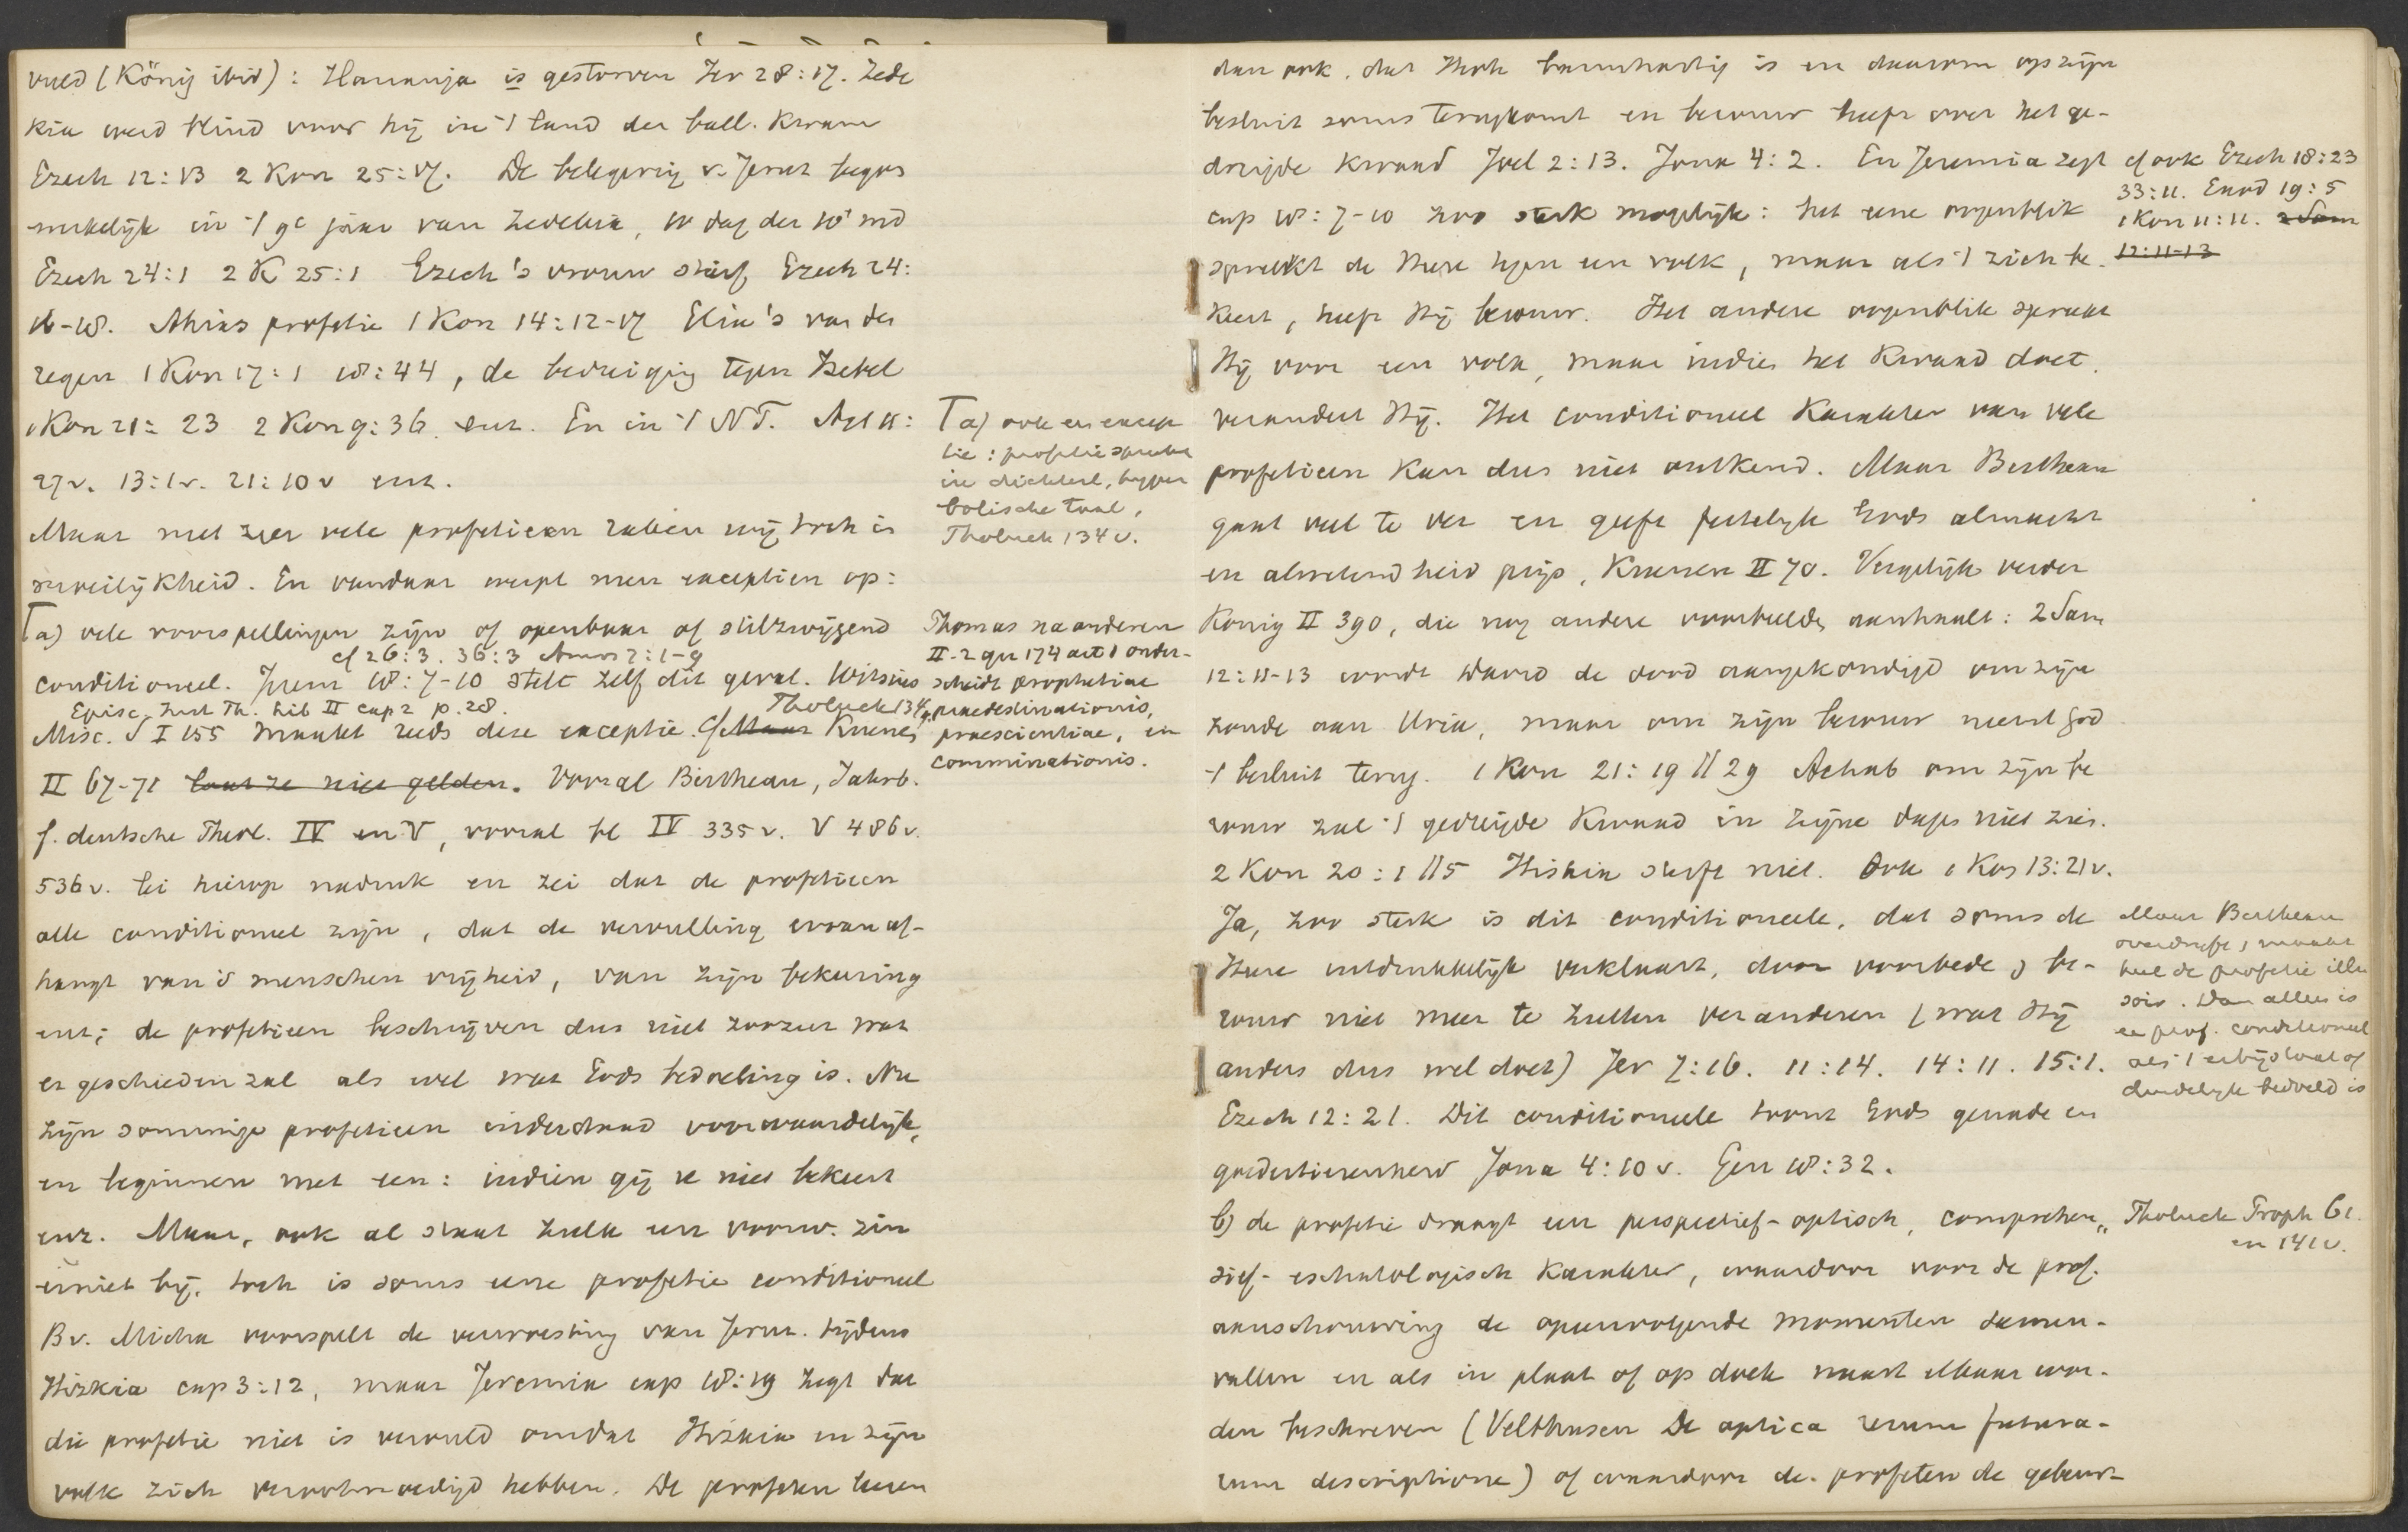 vuld (König ibid): Hananja is gestorven Jer 28:17. Zede
kia werd blind voor hij in 't land der ball. kwam
Ezech 12:13 2 Kon 25:7. De belegering v. Jeruz begon
werkelijk in 't 9e jaar van Zedekia, 10 dag der 10e md
Ezech 24:1 2 K 25:1 Ezech's vrouw stierf Ezech 24:
16-18. Ahias profetie 1 Kon 14:12-17 Elia's van den
regen 1 Kon 17:1 18:44, de bedreiging tegen Izebel
1 Kon 21:23 2 Kon 9:36. enz. En in 't NT. Act 11:
27v. 13:1v. 21:10v enz.
Maar met zeer vele profetieen zulken wij toch in
moeilijkheid. En vandaar werpt men exceptien op:
a) vele voorspellingen zijn of openbaar of stilzwijgend
cf 26:3. 36:3 Amos 7:1-9
conditioneel. Jerem 18:7-10 stelt zelf dit geval. Witsius
Episc. Inst Th. Lib II cap 2 p. 28. Tholuck 134
Misc. S I 155 maakt reeds deze exceptie. Cf Maar Kuenen
II 67-71 laat ze niet gelden. Vooral Bertheau, Jahrb.
f. deutsche Theol. IV en V, vooral bl IV 335v. V 486v.
536v. lei hierop nadruk en zei dat de profetieen
alle conditioneel zijn, dat de vervulling ervan af-
hangt van 's menschen vrijheid, van zijn bekeering
enz; de profetieen beschrijven dus niet zoozeer wat
er geschieden zal als wel wat Gods bedoeling is. Nu
zijn sommige profetieen inderdaad voorwaardelijk,
en beginnen met een: indien gij u niet bekeert
enz. Maar, ook al staat zulk een voorw. zin
er niet bij, toch is soms eene profetie conditioneel
Bv. Micha voorspelt de verwoesting van Jeruz. tijdens
Hizkia cap 3:12, maar Jeremia cap 18:19 zegt dat
die profetie niet is vervuld omdat Hizkia en zijn
volk zich verootmoedigd hebben. De profeten leeren
a) ook een excep
tie: profetie spreekt
in dichterl, hyper
bolische taal,
Tholuck 134v.
Thomas na anderen
II.2 qu 174 art 1 onder-
scheidt prophetiae
praedestinationis,
praescientiae, en
comminationis.
dan ook, dat God barmhartig is en daarom op zijn
besluit soms terugkomt en berouw heeft over het ge-
dreigde kwaad Joel 2:13. Jona 4:2. En Jeremia zegt
cap 18:7-10 zoo sterk mogelijk: het eene oogenblik
spreekt de Heere tegen een volk, maar als 't zich be-
keert, heeft Hij berouw. Het andere oogenblik spreekt
Hij voor een volk, maar indien het kwaad doet,
verandert Hij. Het conditioneel karakter van vele
profetieen kan dus niet ontkend. Maar Bertheau
gaat veel te ver en geeft feitelijk Gods almacht
en alwetendheid prijs, Kuenen II 70. Vergelijk verder
König II 390, die nog andere voorbeelden aanhaalt: 2 Sam
12:11-13 wordt David de dood aangekondigd om zijn
zonde aan Uria, maar om zijn berouw neemt God
't besluit terug. 1 Kon 21:19 // 29 Achab om zijn be
rouw zal 't gedreigde kwaad in zijne dagen niet zien.
2 Kon 20:1 // 5 Hiskia sterft niet. Ook 1 Kon 13:21v.
Ja, zoo sterk is dit conditioneele, dat soms de
Heere uitdrukkelijk verklaart, door voorbede, be-
rouw niet meer te zullen veranderen (wat Hij
anders dus wel doet) Jer 7:16. 11:14. 14:11. 15:1.
Ezech 12:21. Dit conditioneele toont Gods genade en
goedertierenheid Jona 4:10v. Gen 18:32.
b) de profetie draagt een perspectief-optisch, comprehen-
sief-eschatologisch karakter, waardoor voor de prof.
aanschouwing de opeenvolgende momenten samen-
vallen en als in plaat of op doek naast elkaar wor-
den beschreven (Velthusen De optica rerum futura-
rum descriptione) of waardoor de profeten de gebeur-
cf ook Ezech 18:23
33:11. Exod 19:5
1 Kon 11:11. 2 Sam
12:11-13
Maar Bertheau
overdrijft, maakt
heel de profetie illu
soir. Dan alleen is
een prof. conditioneel
als 't er bij staat of
duidelijk bedoeld is
Tholuck Proph 61.
en 141v.